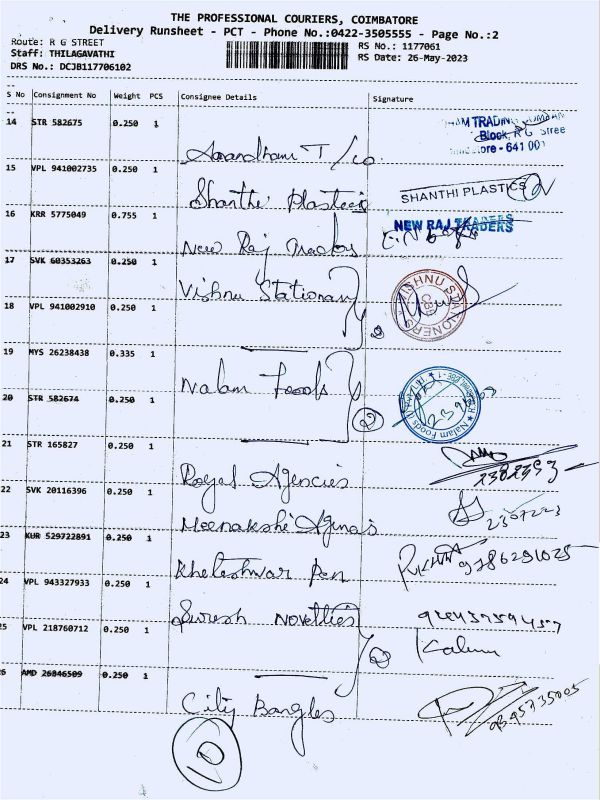 THE PROFESSIONAL COURIERS, COIMBATORE
Delivery Runsheet - PCT - Phone No.:0422-3505555 - Page No.:2
Route: R G STREET
RS No.: 1177061
Staff: THILAGAVATHI
RS Date: 26-May-2023
DRS No.: DCJB117706102
S No Consignment No Weight PCS Consignee Details Signature
14 STR 582675 0.250 1
Anandham T/co.
Block, R G Stree
ore - 641 001
15 VPL 941002735 0.250 1
Shanthi Plastics
SHANTHI PLASTICS
16 KRR 5775049 0.755 1
New Raj Traders
NEW RAJ TRADERS
17 SVK 60353263 0.250 1
Vishnu Stationary
VISHNU STATIONERS
CBE
18 VPL 941002910 0.250 1
2
19 MYS 26238438 0.335 1
Nalam Foods
Nalam Foods
20 STR 582674 0.250 1
2
21 STR 165827 0.250 1
Royal Agencies
22 SVK 20116396 0.250 1
Meenakshi Agencies
23 KUR 529722891 0.250 1
Kheteshwar Pen
9786291025
24 VPL 943327933 0.250 1
Suresh Novelties
25 VPL 218760712 0.250 1
2
26 AMD 26846509 0.250 1
City Bangles
10